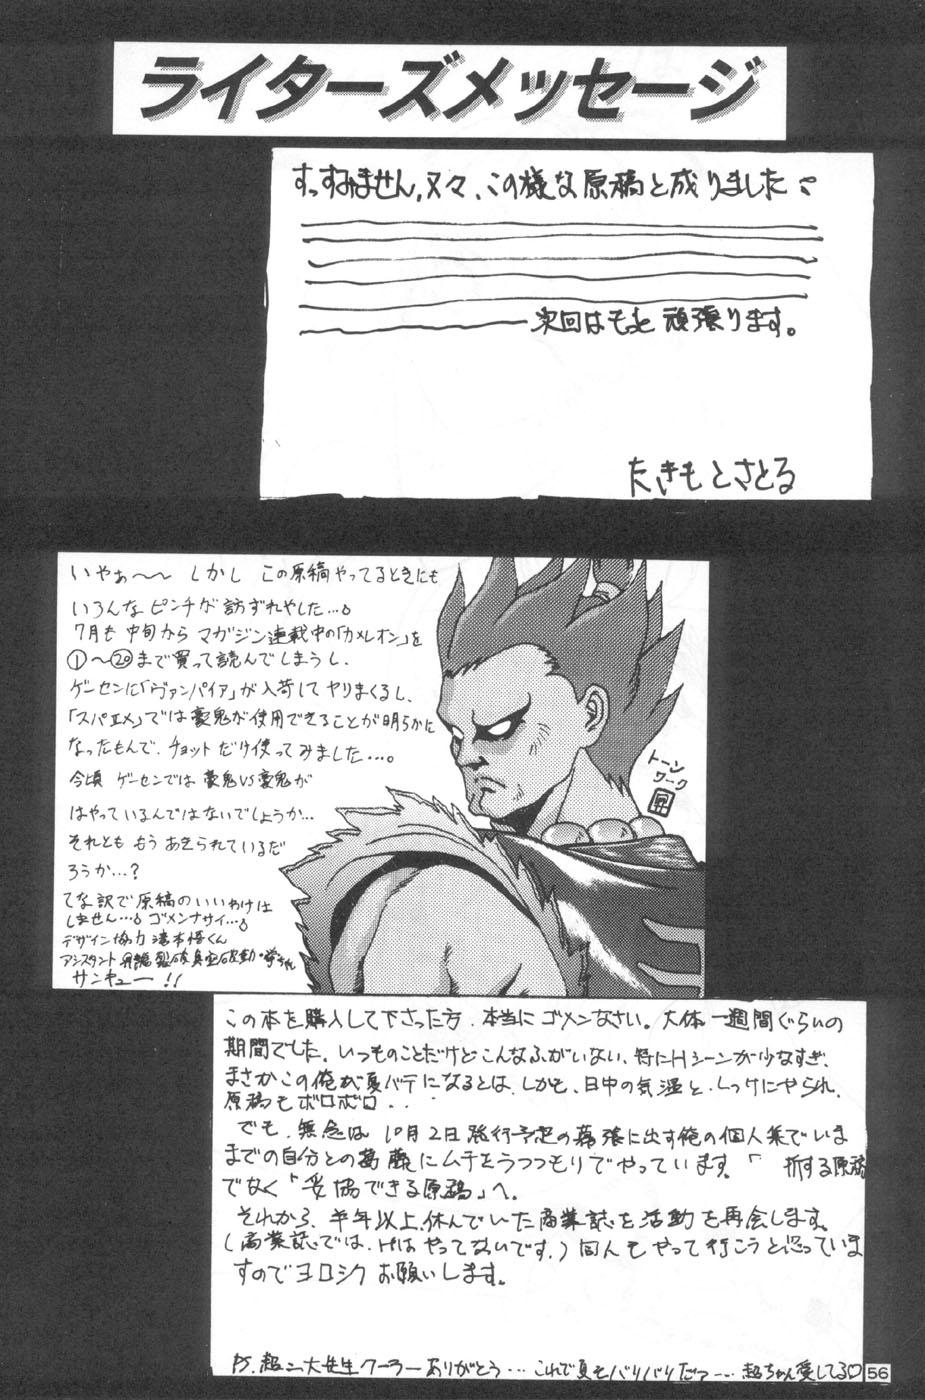 ライターズメッセージ
すっすみません,又々、この様な原稿と成りました
次回はもっと頑張ります。
たきもとさとる
いやぁ〜〜 しかし この原稿やってるときにも
いろんなピンチが訪ずれやした…。
7月も中旬から マガジン連載中の「カメレオン」を
①〜⑳まで買って読んでしまうし、
ゲーセンに「ヴァンパイア」が入荷してヤリまくるし、
「スパⅡX」では豪鬼が使用できることが明らかに
なったもんで、チョットだけ使ってみました…。
今頃 ゲーセンでは豪鬼VS豪鬼が
はやっているんではないでしょうか…
それとも もうあきられているだ
ろうか…?
てな訳で原稿のいいわけは
しません…。ゴメンナサイ…。
デザイン協力 滝本悟くん
アシスタント
サンキュー!!
トーン
ワーク
昇
この本を購入して下さった方、本当にゴメンなさい。大体一週間ぐらいの
期間でした。いつものことだけどこんなふがいない、特にHシーンが少なすぎ、
まさかこの俺が夏バテになるとは、しかも、日中の気温と、しっけにやられ、
原稿もボロボロ・・
でも、無念は10月2日発行予定の幕張に出す俺の個人集でいま
までの自分との葛藤にムチをうつつもりでやっています。「 折する原稿
でなく「妥協できる原稿」へ。
それから、半年以上休んでいた商業誌を活動を再会します。
(商業誌では、Hはやってないです。)同人もやって行こうと思っていま
すのでヨロシクお願いします。
PS.超二大先生クーラーありがとう…これで夏もバリバリだァー…超ちゃん愛してる♡
56